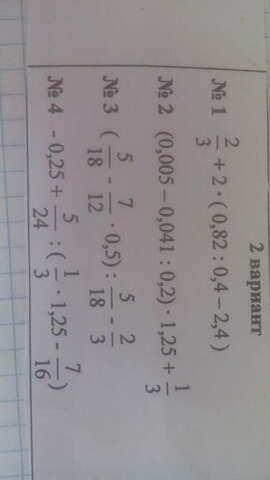 2 вариант
№ 1 2/3 + 2 · ( 0,82 : 0,4 – 2,4 )
№ 2 (0,005 – 0,041 : 0,2) · 1,25 + 1/3
№ 3 ( 5/18 - 7/12 · 0,5) : 5/18 - 2/3
№ 4 - 0,25 + 5/24 : ( 1/3 · 1,25 - 7/16 )